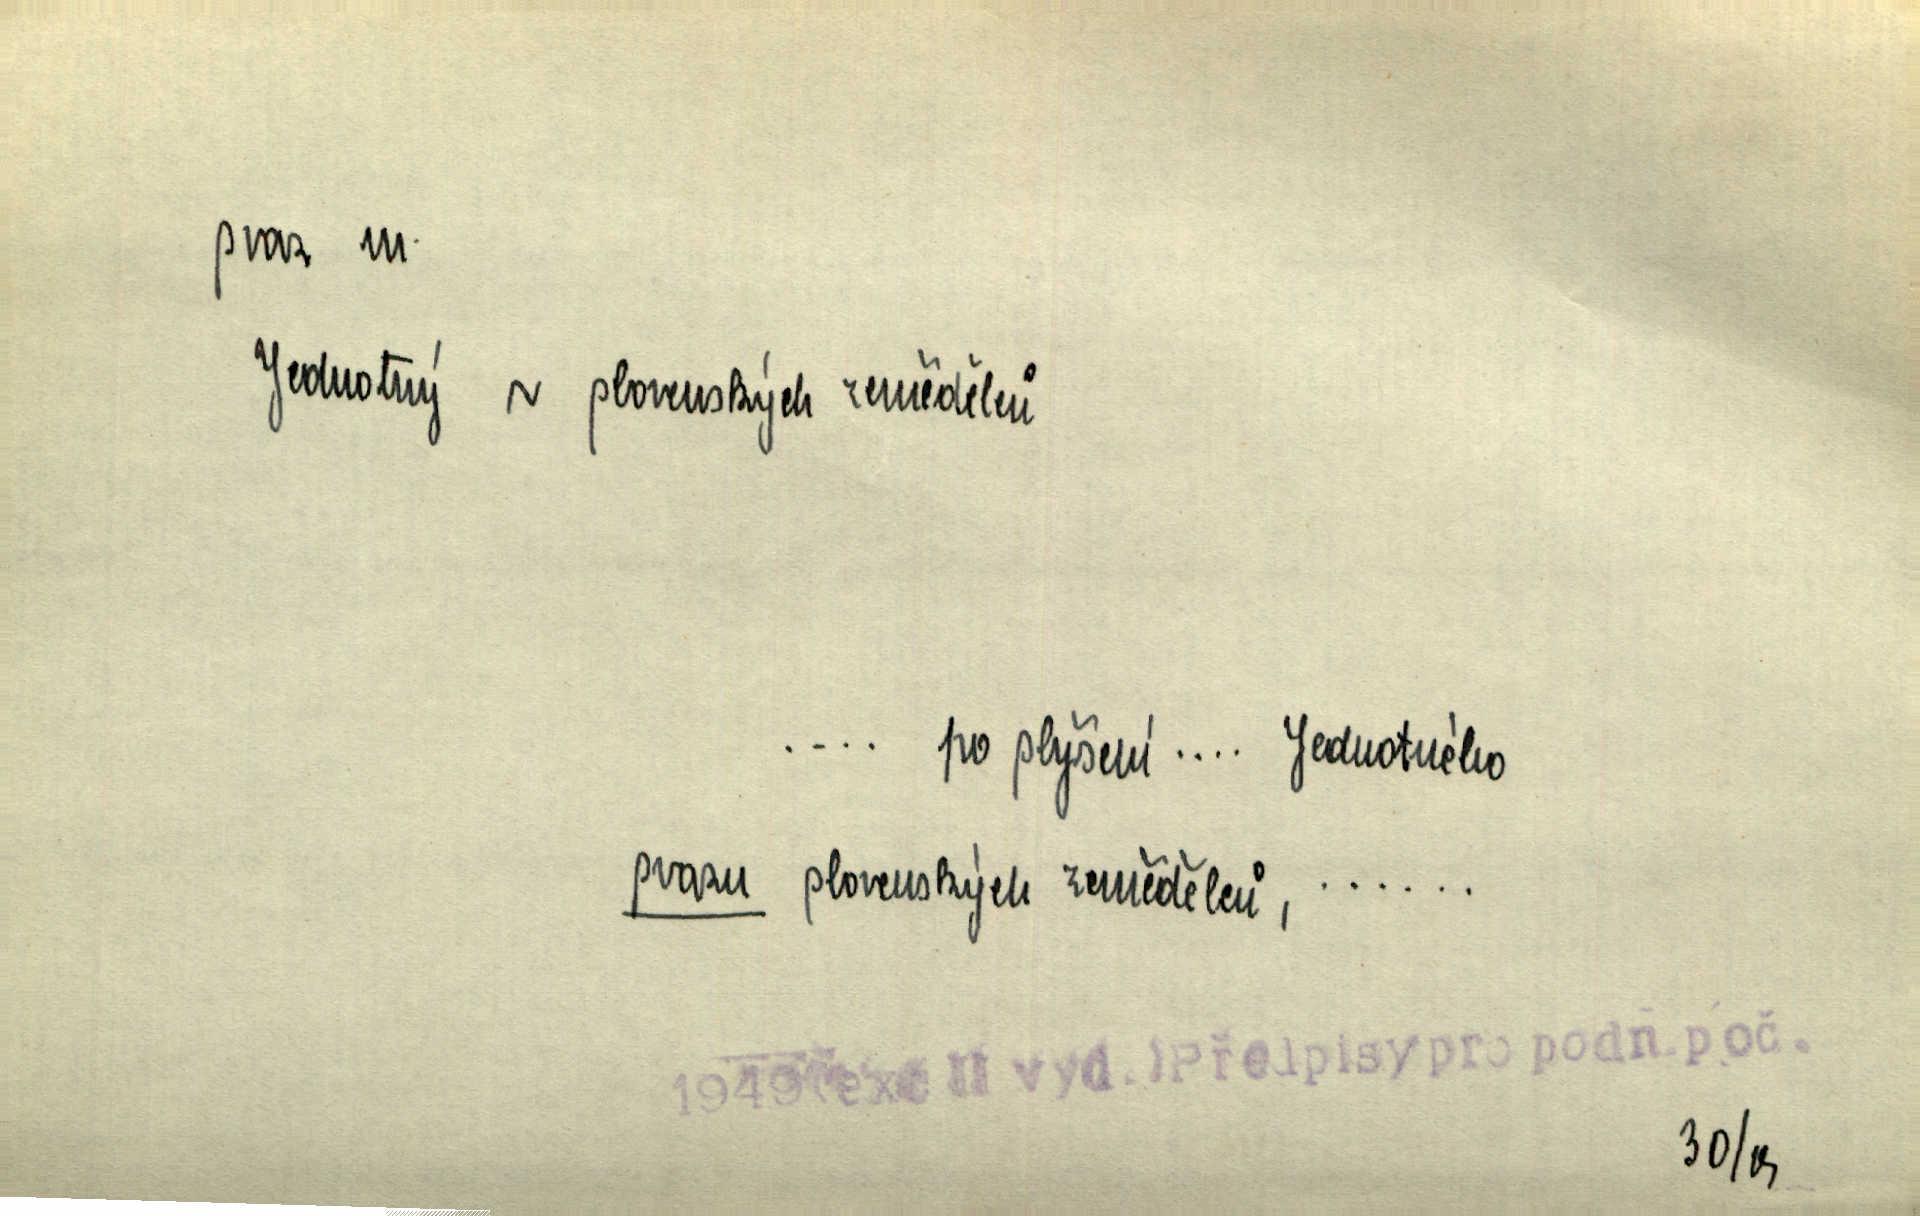 svaz m.
Jednotný ~ slovenských zemědělců
.... po slyšení .... Jednotného
svazu slovenských zemědělců, ......
1949(exc II vyd.)Předpisy pro podn.poč.
30/